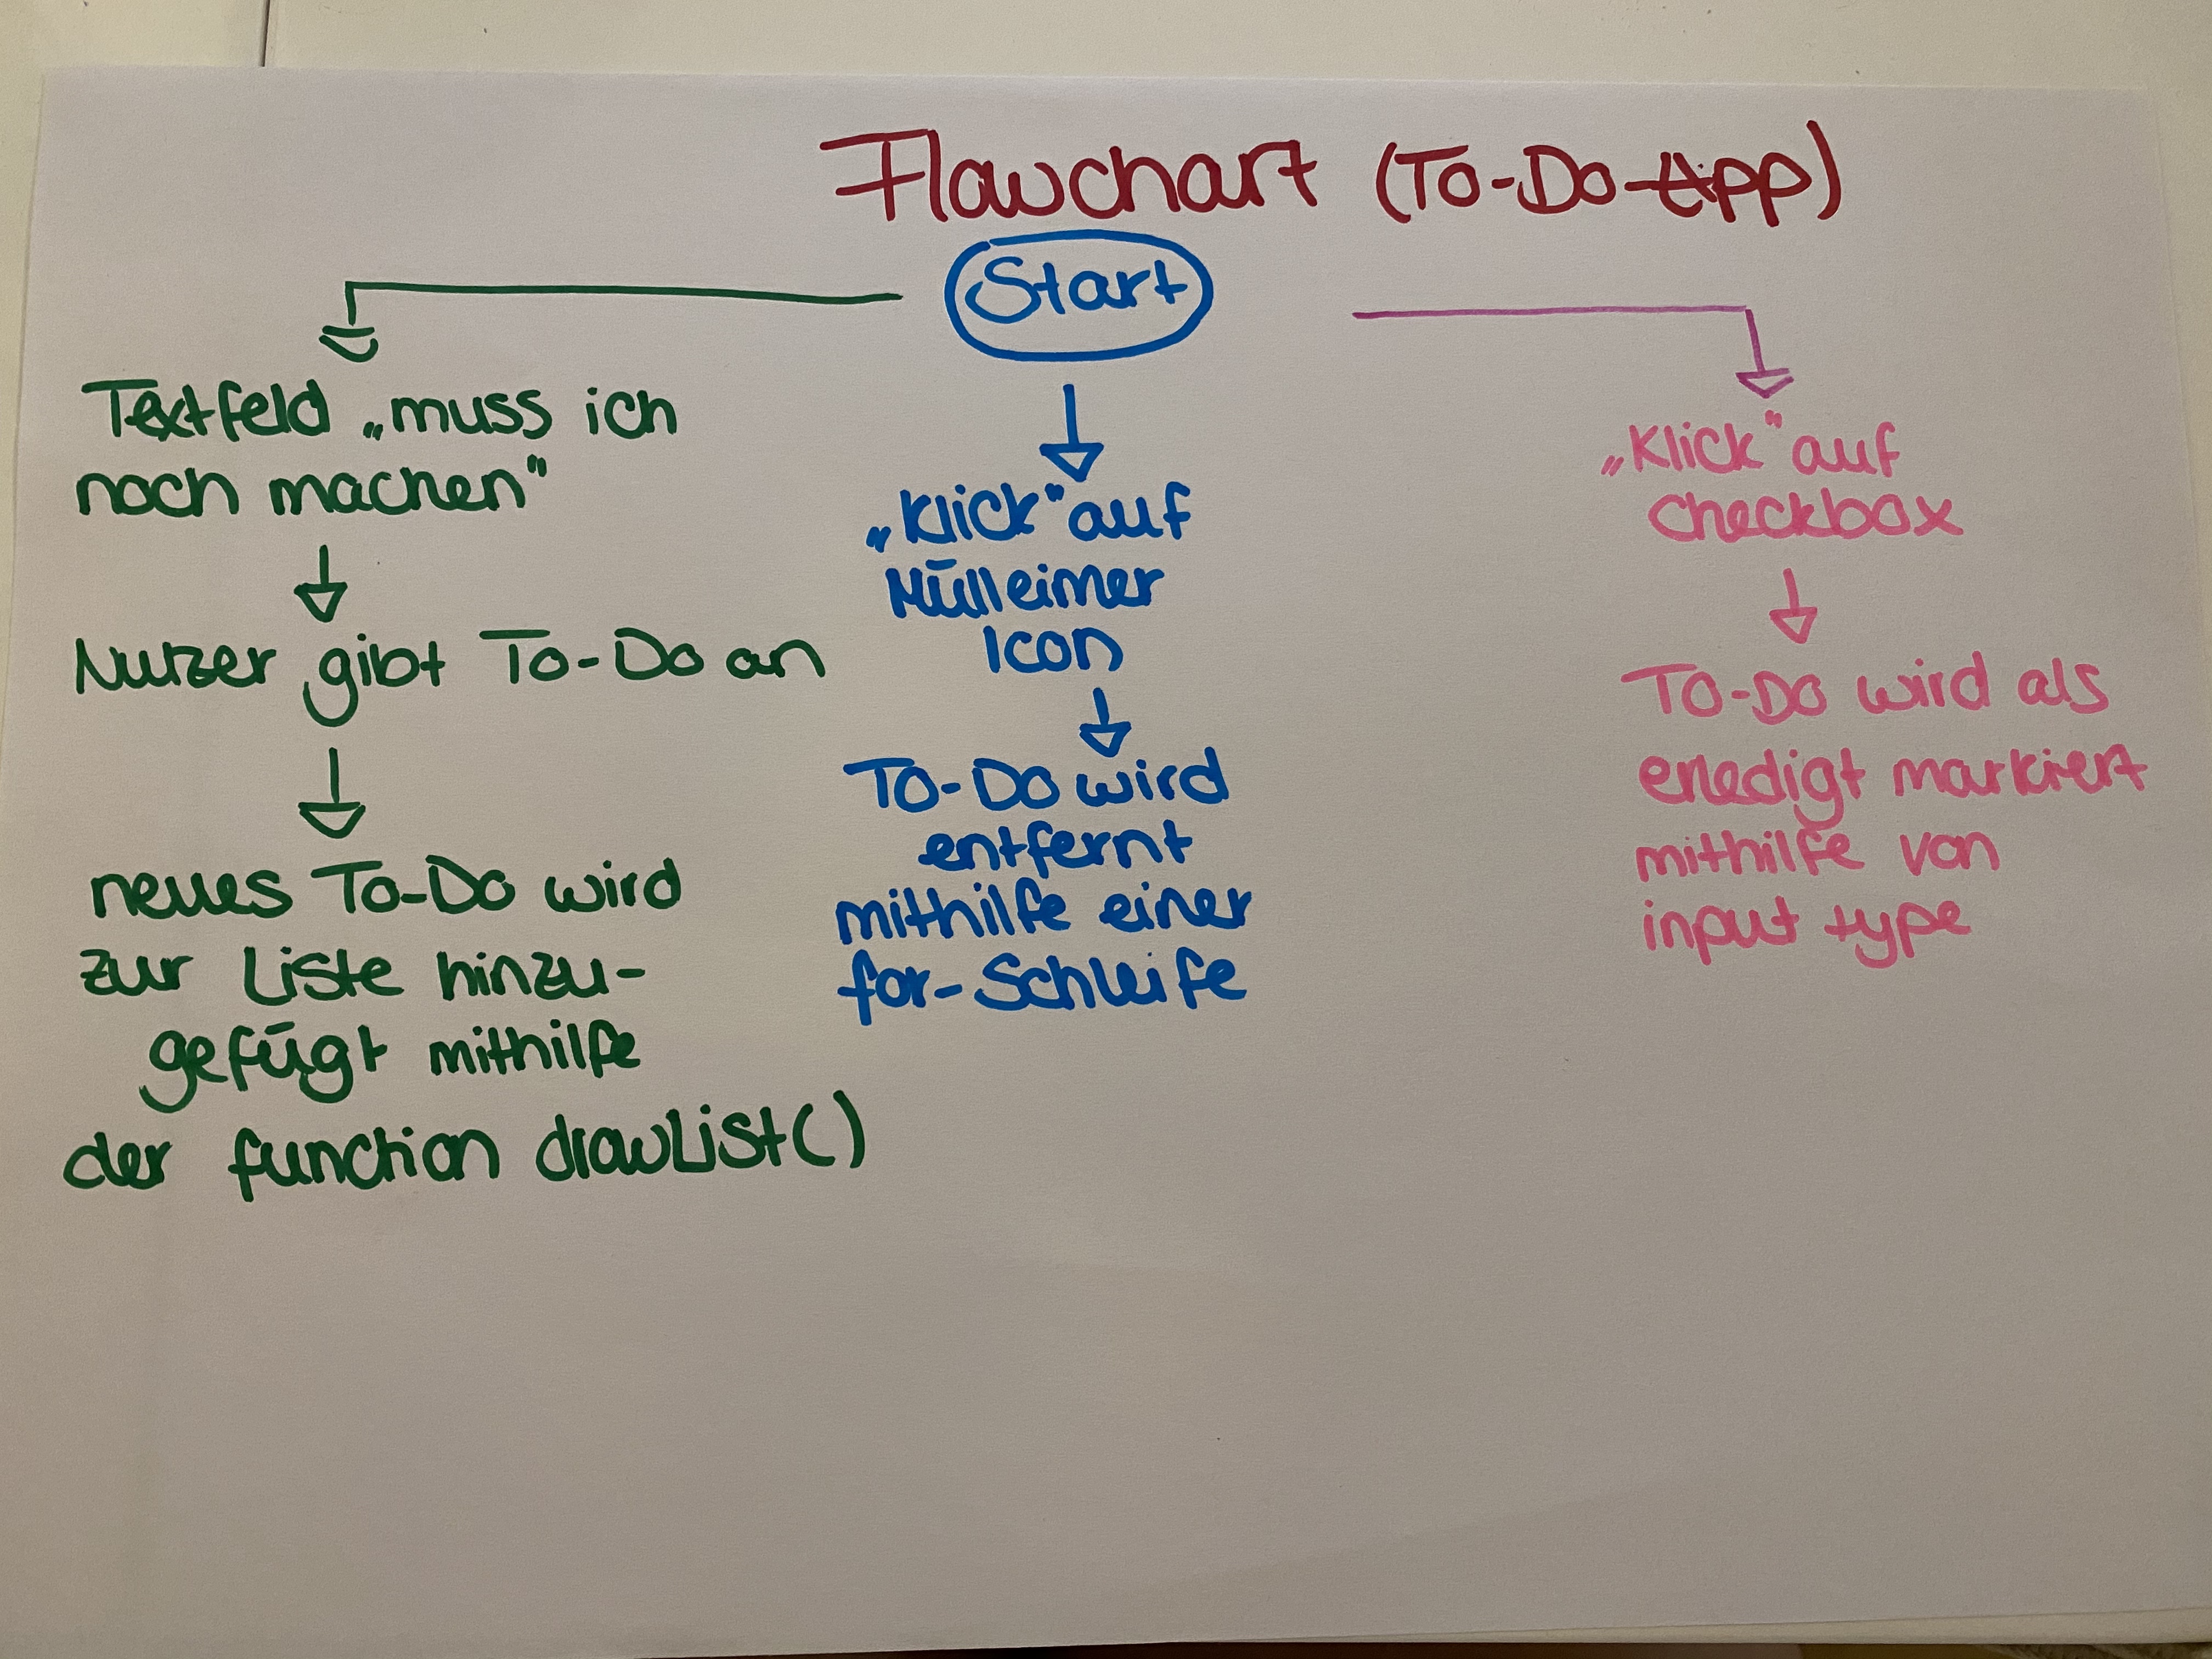 Flowchart (To-Do-App)
Start
Textfeld „muss ich
noch machen"
Nutzer gibt To-Do an
neues To-Do wird
zur Liste hinzu-
gefügt mithilfe
der function drawList()
„Klick" auf
Mülleimer
Icon
To-Do wird
entfernt
mithilfe einer
for-Schleife
„Klick" auf
Checkbox
To-Do wird als
erledigt markiert
mithilfe von
input type